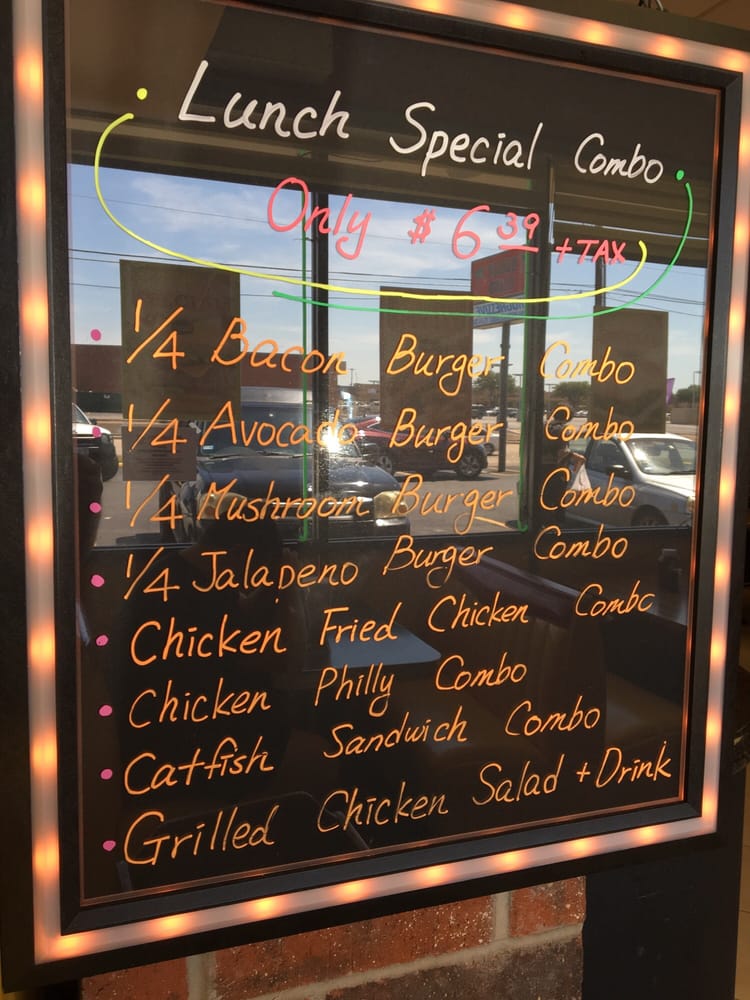 Lunch Special Combo
Only $6 39 + TAX
1/4 Bacon Burger Combo
1/4 Avocado Burger Combo
1/4 Mushroom Burger Combo
1/4 Jalapeno Burger Combo
Chicken Fried Chicken Combo
Chicken Philly Combo
Catfish Sandwich Combo
Grilled Chicken Salad + Drink